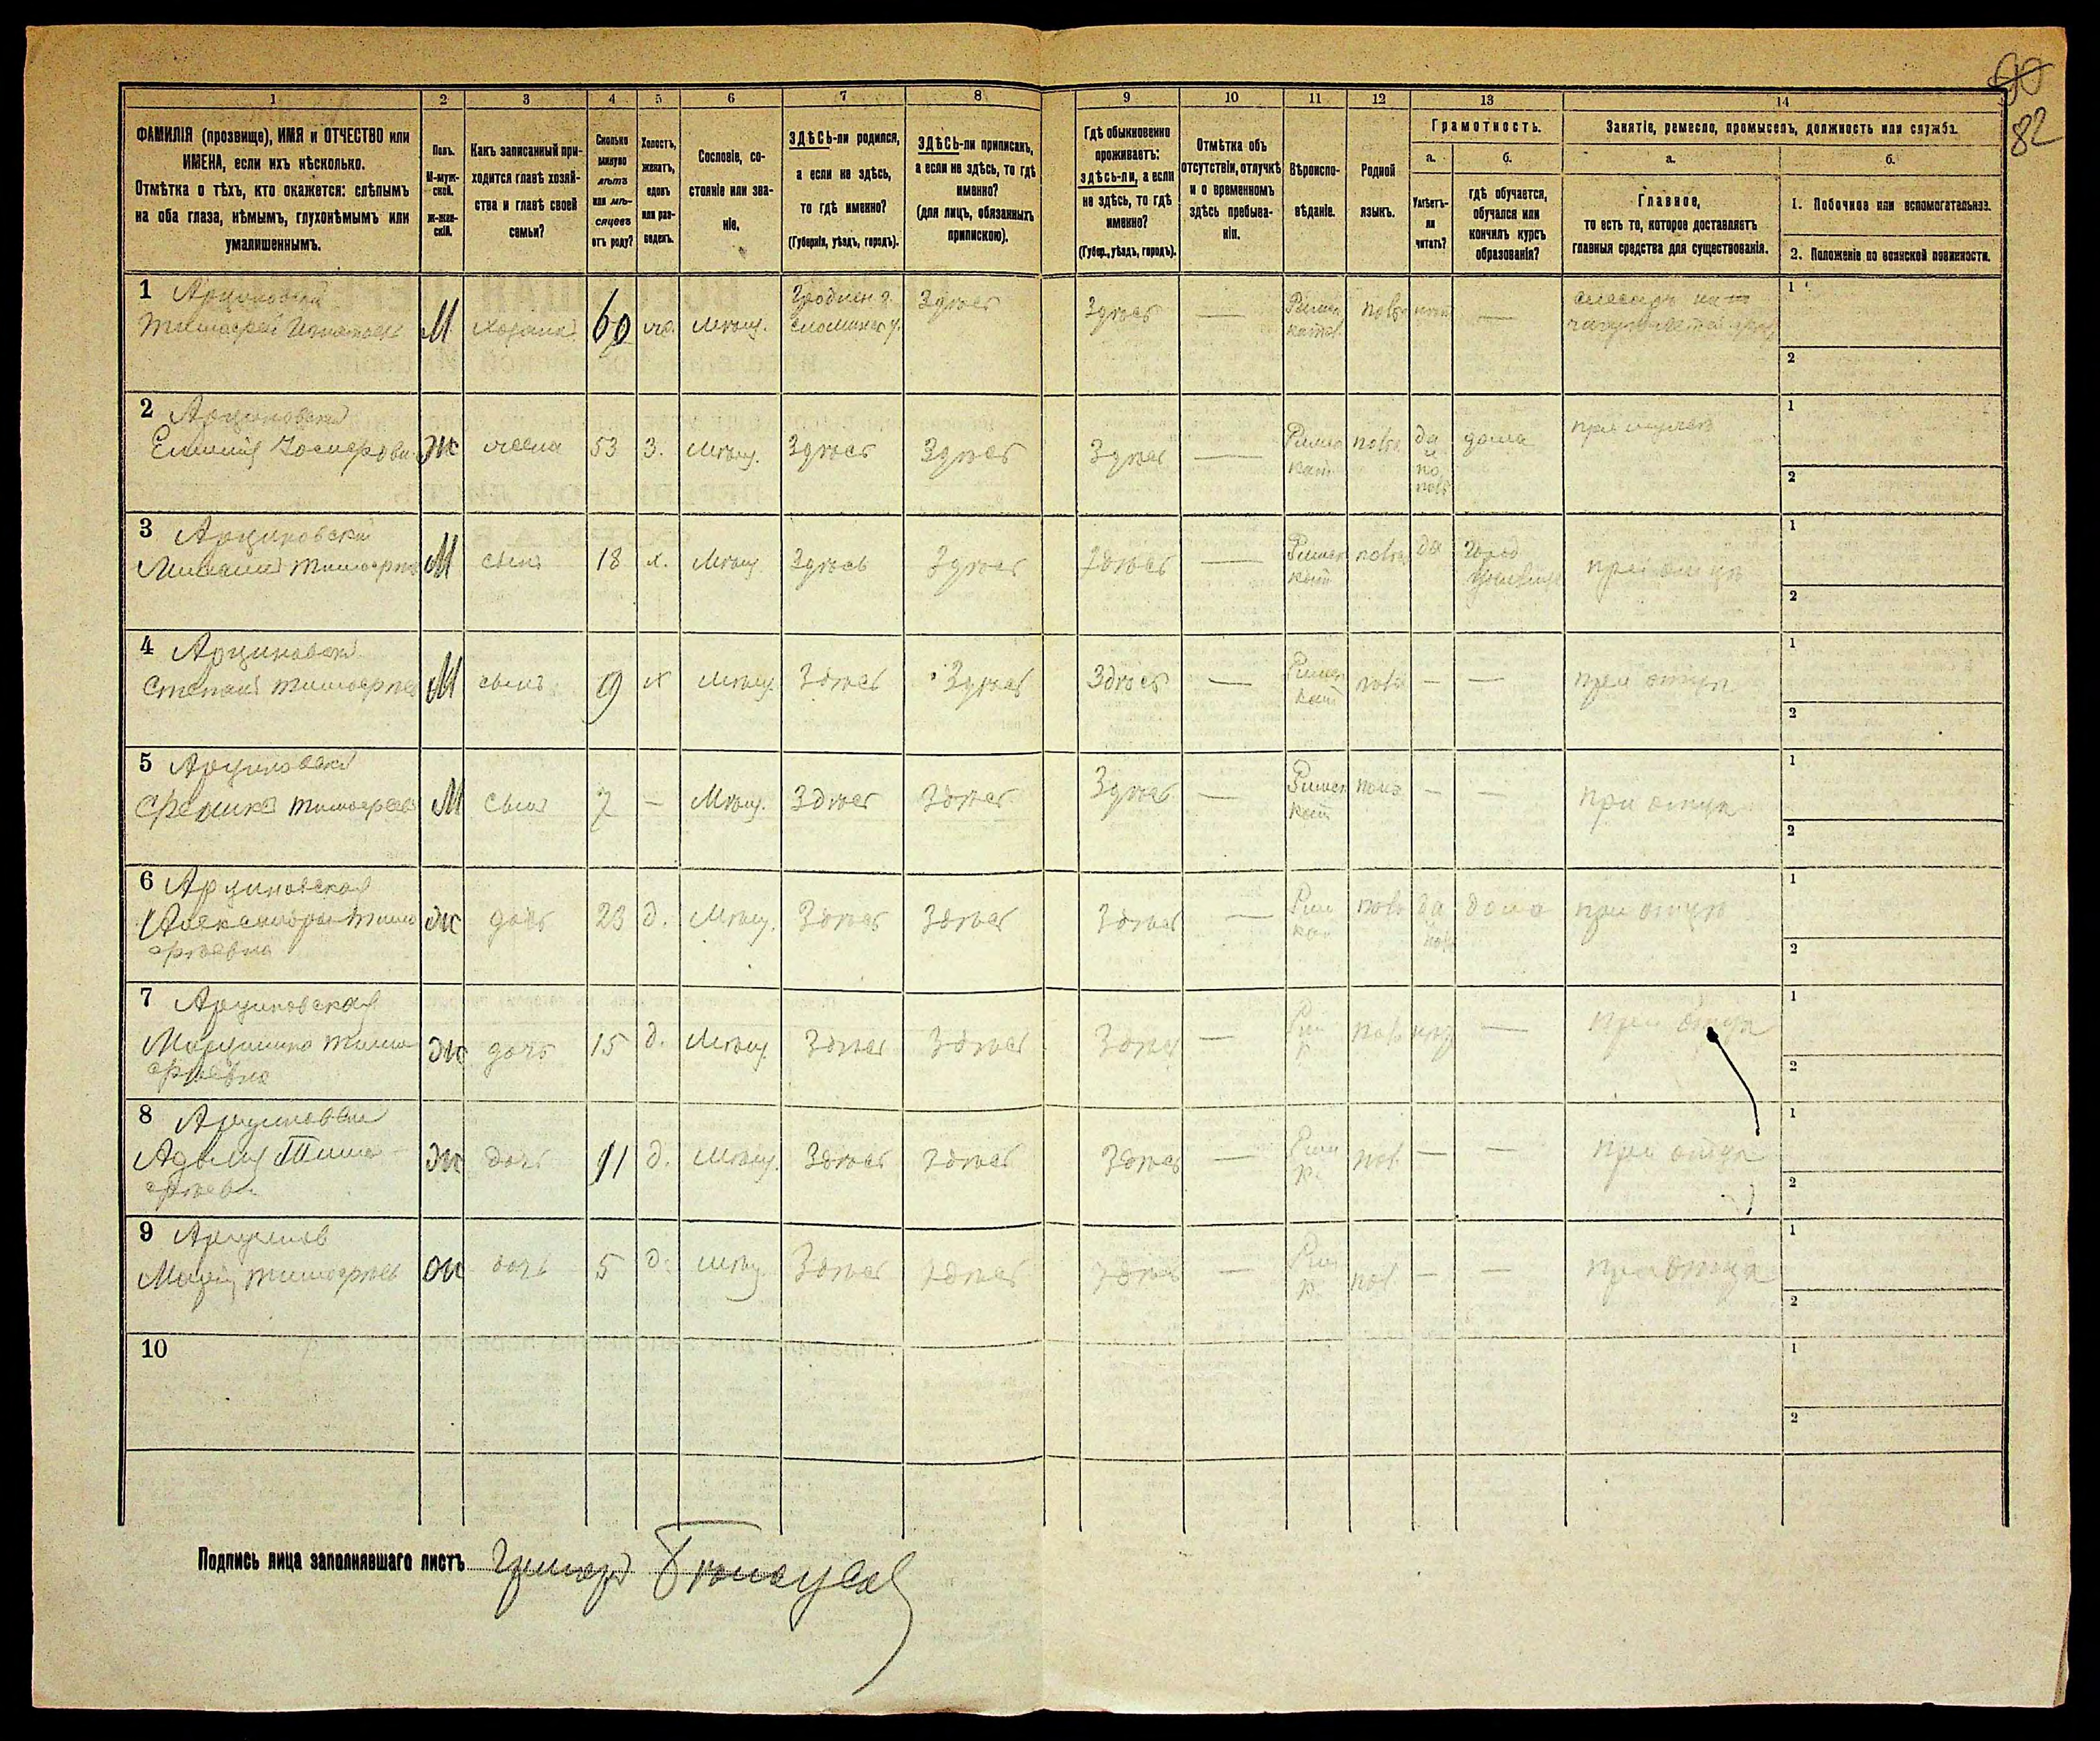 90
82
1
2
3
4
5
6
7
8
9
10
11
12
13
14
ФАМИЛІЯ (прозвище), ИМЯ и ОТЧЕСТВО или
ИМЕНА, если ихъ нѣсколько.
Отмѣтка о тѣхъ, кто окажется: слѣпымъ
на оба глаза, нѣмымъ, глухонѣмымъ или
умалишеннымъ.
Полъ.
М-муж-
ской.
ж-жен-
скій.
Какъ записанный при-
ходится главѣ хозяй-
ства и главѣ своей
семьи?
Сколько
минуло
лѣтъ
или мѣ-
сяцевъ
отъ роду?
Холостъ,
женатъ,
вдовъ
или раз-
веденъ.
Сословіе, со-
стояніе или зва-
ніе.
ЗДѢСЬ-ли родился,
а если не здѣсь,
то гдѣ именно?
(Губернія, уѣздъ, городъ).
ЗДѢСЬ-ли приписанъ,
а если не здѣсь, то гдѣ
именно?
(для лицъ, обязанныхъ
припискою).
Гдѣ обыкновенно
проживаетъ:
здѣсь-ли, а если
не здѣсь, то гдѣ
именно?
(Губер., уѣздъ, городъ).
Отмѣтка объ
отсутствіи, отлучкѣ
и о временномъ
здѣсь пребыва-
ніи.
Вѣроиспо-
вѣданіе.
Родной
языкъ.
Грамотность.
а.
Умѣетъ-
ли
читать?
б.
гдѣ обучается,
обучался или
кончилъ курсъ
образованія?
Занятіе, ремесло, промыселъ, должность или служба.
а.
Главное,
то есть то, которое доставляетъ
главныя средства для существованія.
б.
1. Побочное или вспомогательное.
2. Положеніе по воинской повинности.
1 Арциновскій
Тимофей Игнатовъ М хозяинъ 60 же. мѣщ. Гроднен г. Слонимск у. Здѣсь Здѣсь — Римск катол. польс нѣтъ —
1
2
2 Арциновская
Емилія Іосифовн Ж жена 53 З. мѣщ. Здѣсь Здѣсь Здѣсь — Римск кат. польс да и по польс дома при мужѣ
1
2
3 Арциновскій
Тимофѣев М сынъ 18 х. Мѣщ. Здѣсь Здѣсь Здѣсь — Римск кат польс да Город училищ при отцѣ
1
2
4 Арциновскій
Степанъ Тимофѣев М сынъ 9 х мѣщ. Здѣсь Здѣсь Здѣсь — Римск кат польс — — при отцѣ
1
2
5 Арциновскій
Феликсъ Тимофѣев М сынъ 7 — Мѣщ. Здѣсь Здѣсь Здѣсь — Римск кат поль — — при отцѣ
1
2
6 Арциновская
Александра Тимо
фѣевна Ж дочь 23 д. Мѣщ. Здѣсь Здѣсь Здѣсь — Рим ка польс да поль дома при отцѣ
1
2
7 Арциновская
Марцинна Тимо
фѣевна Ж дочь 15 д. Мѣщ. Здѣсь Здѣсь Здѣсь — Рим к польс нѣт — при отцѣ
1
2
8 Арциновская
Адэлія Тимо
фѣев. Ж дочь 11 д. мѣщ. Здѣсь Здѣсь Здѣсь — Рим к. пол. — — при отцѣ
1
2
9 Арцинов
Марія Тимофѣев Ж дочь 5 д. мѣщ. Здѣсь Здѣсь Здѣсь — Рим к. пол — — при отцѣ
1
2
10
1
2
Подпись лица заполнявшаго листъ